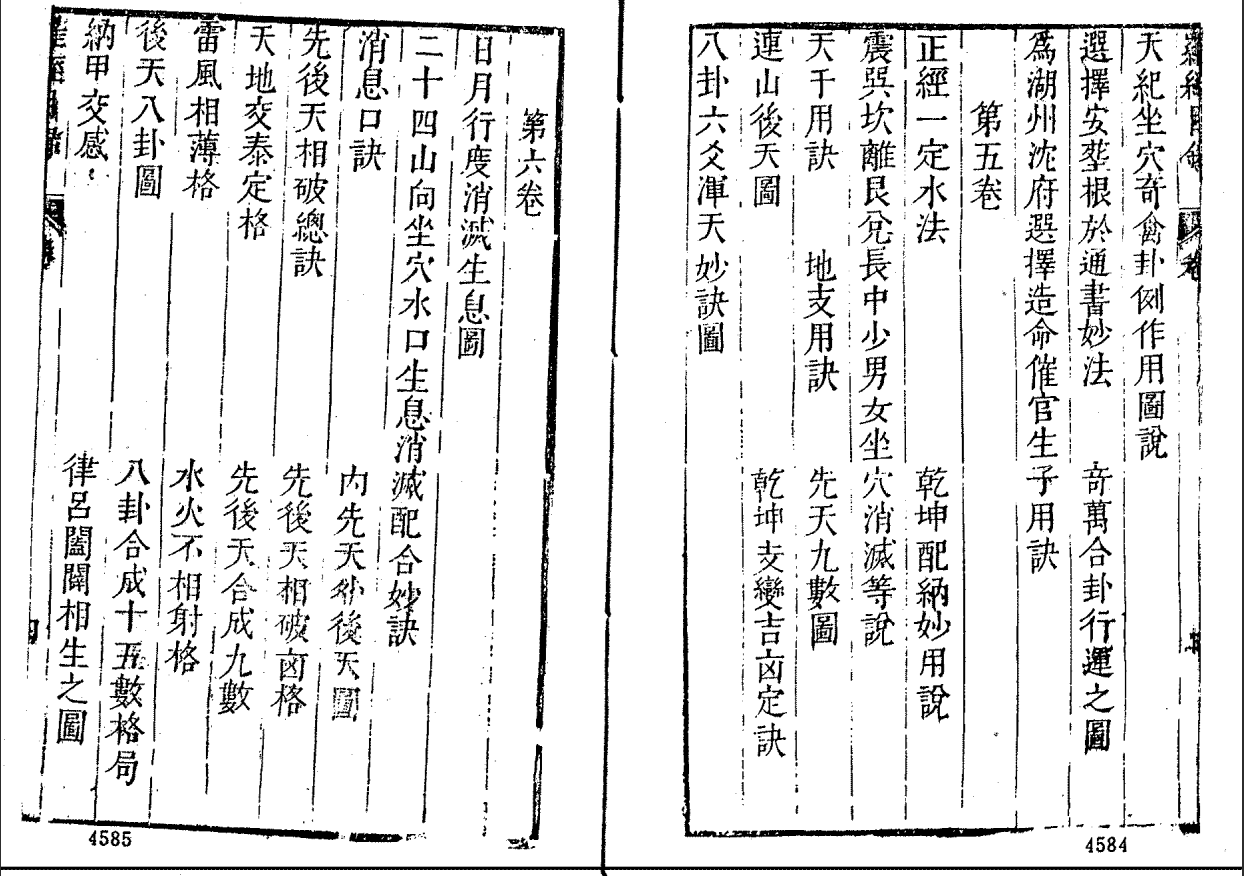 天紀坐穴奇禽卦例作用圖說
選擇安塟根於通書妙法　奇萬合卦行運之圖
爲湖州沈府選擇造命催官生子用訣
第五卷
正經一定水法　乾坤配納妙用說
震巽坎離艮兌長中少男女坐穴消滅等說
天干用訣　地支用訣　先天九數圖
連山後天圖　乾坤爻變吉凶定訣
八卦六爻渾天妙訣圖
4584
第六卷
日月行度消滅生息圖
二十四山向坐穴水口生息消滅配合妙訣
消息口訣　內先天外後天圖
先後天相破總訣　先後天相破凶格
天地交泰定格　先後天合成九數
雷風相薄格　水火不相射格
後天八卦圖　八卦合成十五數格局
納甲交感　律呂闔闢相生之圖
四
4585